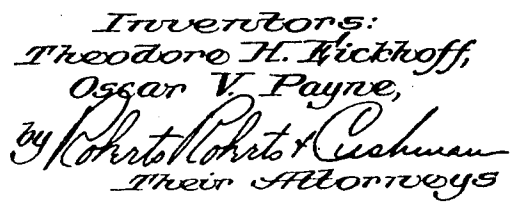 Inventors:
Theodore H. Eickhoff,
Oscar V. Payne,
by Roberts Roberts & Cushman
Their Attorneys